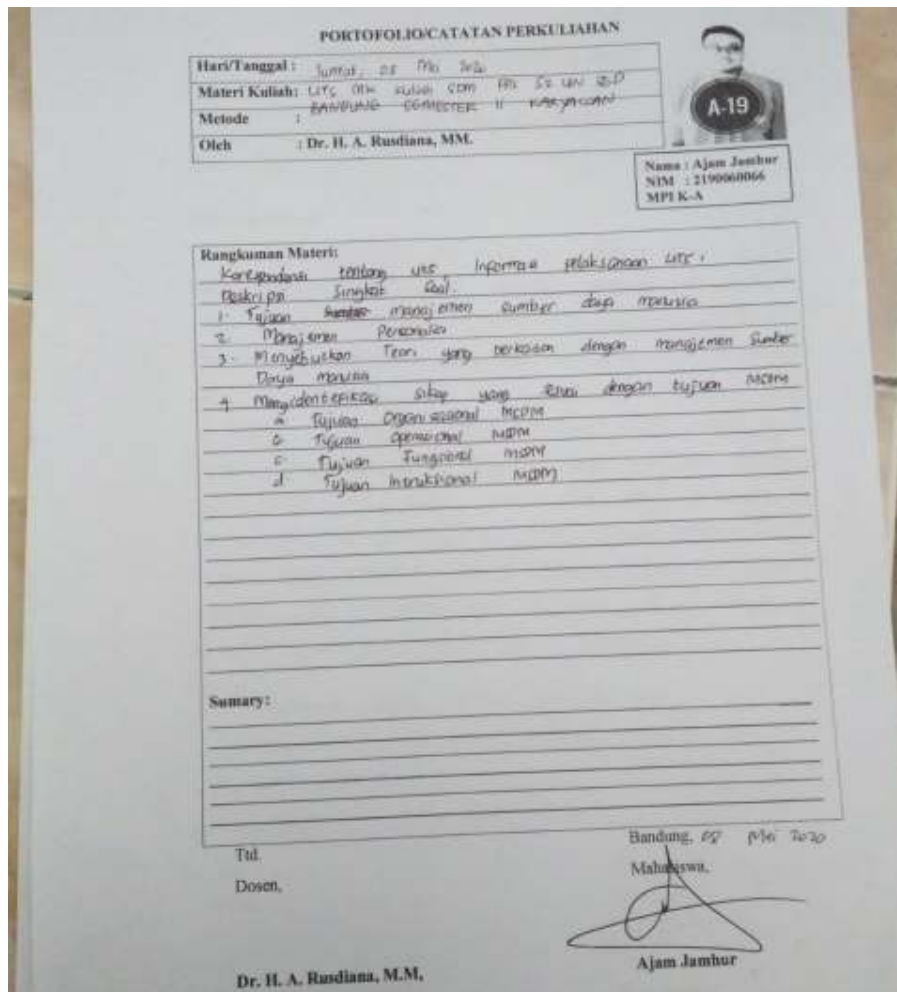 PORTOFOLIO/CATATAN PERKULIAHAN
Hari/Tanggal : Jumat, 08 Mei 2020
Materi Kuliah: UTS Mk kuliah SDM MPI S2 UIN SGD
BANDUNG SEMESTER II KARYAWAN
Metode :
Oleh : Dr. H. A. Rusdiana, MM.
A-19
Nama : Ajam Jambur
NIM : 2190060066
MPI K-A
Rangkuman Materi:
Korespondensi tentang UTS, Informasi pelaksanaan UTS,
Deskripsi Singkat Soal.
1. Tujuan manajemen sumber daya manusia
2. Manajemen Personalia
3. Menyebutkan Teori yang berkaitan dengan manajemen Sumber
Daya manusia
4. Mengidentifikasi sikap yang sesuai dengan tujuan MSDM
a Tujuan Organisasional MSDM
b Tujuan Operasional MSDM
c Tujuan Fungsional MSDM
d Tujuan Instruksional MSDM
Sumary:
Ttd.
Dosen,
Dr. H. A. Rusdiana, M.M,
Bandung, 08 Mei 2020
Mahasiswa,
Ajam Jambur